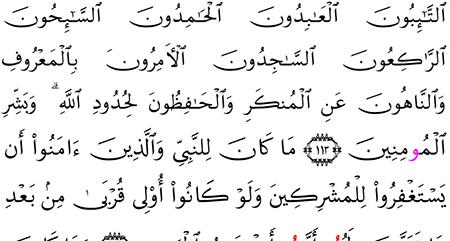 ٱلتَّٰٓئِبُونَ ٱلْعَٰبِدُونَ ٱلْحَٰمِدُونَ ٱلسَّٰٓئِحُونَ
ٱلرَّٰكِعُونَ ٱلسَّٰجِدُونَ ٱلْأٓمِرُونَ بِالْمَعْرُوفِ
وَالنَّاهُونَ عَنِ ٱلْمُنكَرِ وَالْحَٰفِظُونَ لِحُدُودِ ٱللَّهِ ۗ وَبَشِّرِ
ٱلْمُومِنِينَ ١١٣ مَا كَانَ لِلنَّبِيِّ وَالَّذِينَ ءَامَنُوا۟ أَن
يَسْتَغْفِرُوا۟ لِلْمُشْرِكِينَ وَلَوْ كَانُوا۟ أُو۟لِي قُرْبَىٰ مِنۢ بَعْدِ